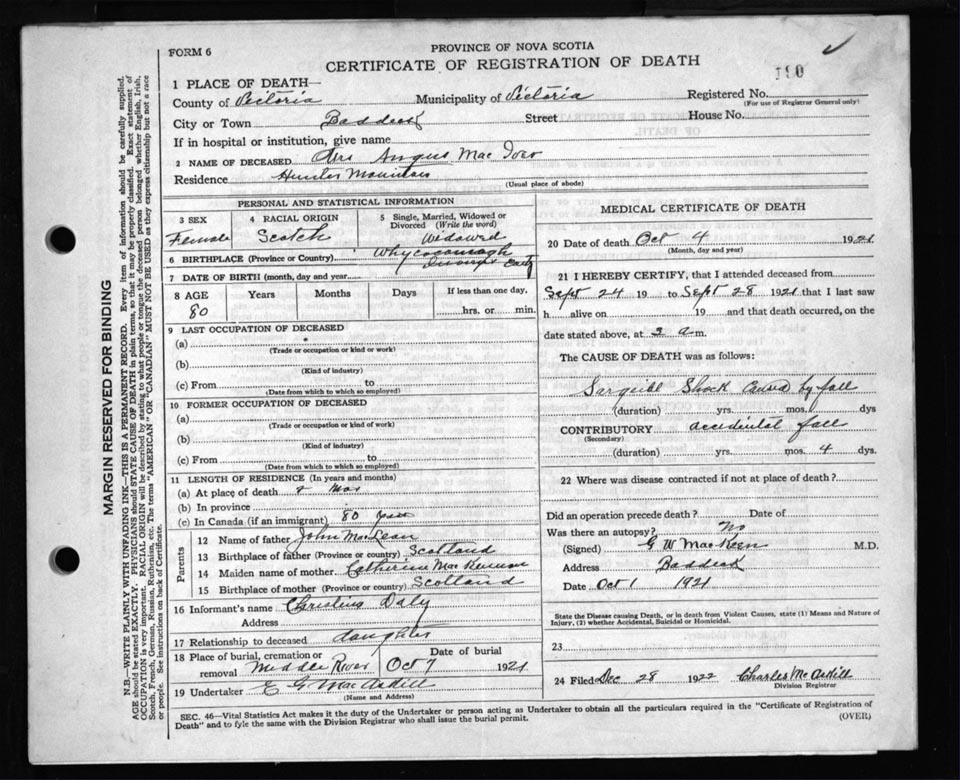 FORM 6
PROVINCE OF NOVA SCOTIA
CERTIFICATE OF REGISTRATION OF DEATH
190
1 PLACE OF DEATH—
County of Victoria Municipality of Victoria Registered No.
(For use of Registrar General only)
City or Town Baddeck Street House No.
If in hospital or institution, give name
2 NAME OF DECEASED Mrs Angus Mac Iver
Residence Hunter Mountain
(Usual place of abode)
PERSONAL AND STATISTICAL INFORMATION
3 SEX 4 RACIAL ORIGIN 5 Single, Married, Widowed or Divorced (Write the word)
Female Scotch Widowed
6 BIRTHPLACE (Province or Country) Whycocomagh
7 DATE OF BIRTH (month, day and year)
8 AGE Years Months Days If less than one day,
80 hrs. or min.
9 LAST OCCUPATION OF DECEASED
(a)
(Trade or occupation or kind or work)
(b)
(Kind of industry)
(c) From to
(Date from which to which so employed)
10 FORMER OCCUPATION OF DECEASED
(a)
(Trade or occupation or kind of work)
(b)
(Kind of industry)
(c) From to
(Date from which to which so employed)
11 LENGTH OF RESIDENCE (In years and months)
(a) At place of death Mos
(b) In province
(c) In Canada (if an immigrant) 80 years
Parents
12 Name of father John MacLean
13 Birthplace of father (Province or country) Scotland
14 Maiden name of mother Catherine MacKinnon
15 Birthplace of mother (Province or country) Scotland
16 Informant's name Christina Daly
Address
17 Relationship to deceased daughter
18 Place of burial, cremation or removal Middle River Date of burial Oct 7 1921
19 Undertaker E G MacAskill
(Name and Address)
MEDICAL CERTIFICATE OF DEATH
20 Date of death Oct 4 1921
(Month, day and year)
21 I HEREBY CERTIFY, that I attended deceased from
Sept 24 19 to Sept 28 1921 that I last saw
h alive on 19 and that death occurred, on the
date stated above, at 3 a.m.
The CAUSE OF DEATH was as follows:
Shock Caused by fall
(duration) yrs. mos. dys
CONTRIBUTORY accidental fall
(Secondary)
(duration) yrs. mos. 4 dys.
22 Where was disease contracted if not at place of death?
Did an operation precede death? Date of
Was there an autopsy? No
(Signed) G W MacKeen M.D.
Address Baddeck
Date Oct 1 1921
State the Disease causing Death, or in death from Violent Causes, state (1) Means and Nature of
Injury, (2) whether Accidental, Suicidal or Homicidal.
23
24 Filed Dec 28 1922 Charles McAskill
Division Registrar
SEC. 46—Vital Statistics Act makes it the duty of the Undertaker or person acting as Undertaker to obtain all the particulars required in the "Certificate of Registration of
Death" and to fyle the same with the Division Registrar who shall issue the burial permit.
(OVER)
MARGIN RESERVED FOR BINDING
N.B.—WRITE PLAINLY WITH UNFADING INK—THIS IS A PERMANENT RECORD. Every item of information should be carefully supplied.
AGE should be stated EXACTLY. PHYSICIANS should STATE CAUSE OF DEATH in plain terms, so that it may be properly classified. Exact statement of
OCCUPATION is very important. RACIAL ORIGIN will be described by stating to what people or tongue the deceased person belonged whether English, Irish,
Scotch, French, German, Russian, Ruthenian, etc. The terms "AMERICAN" OR "CANADIAN" MUST NOT BE USED as they express citizenship but not a race
or people. See instructions on back of Certificate.